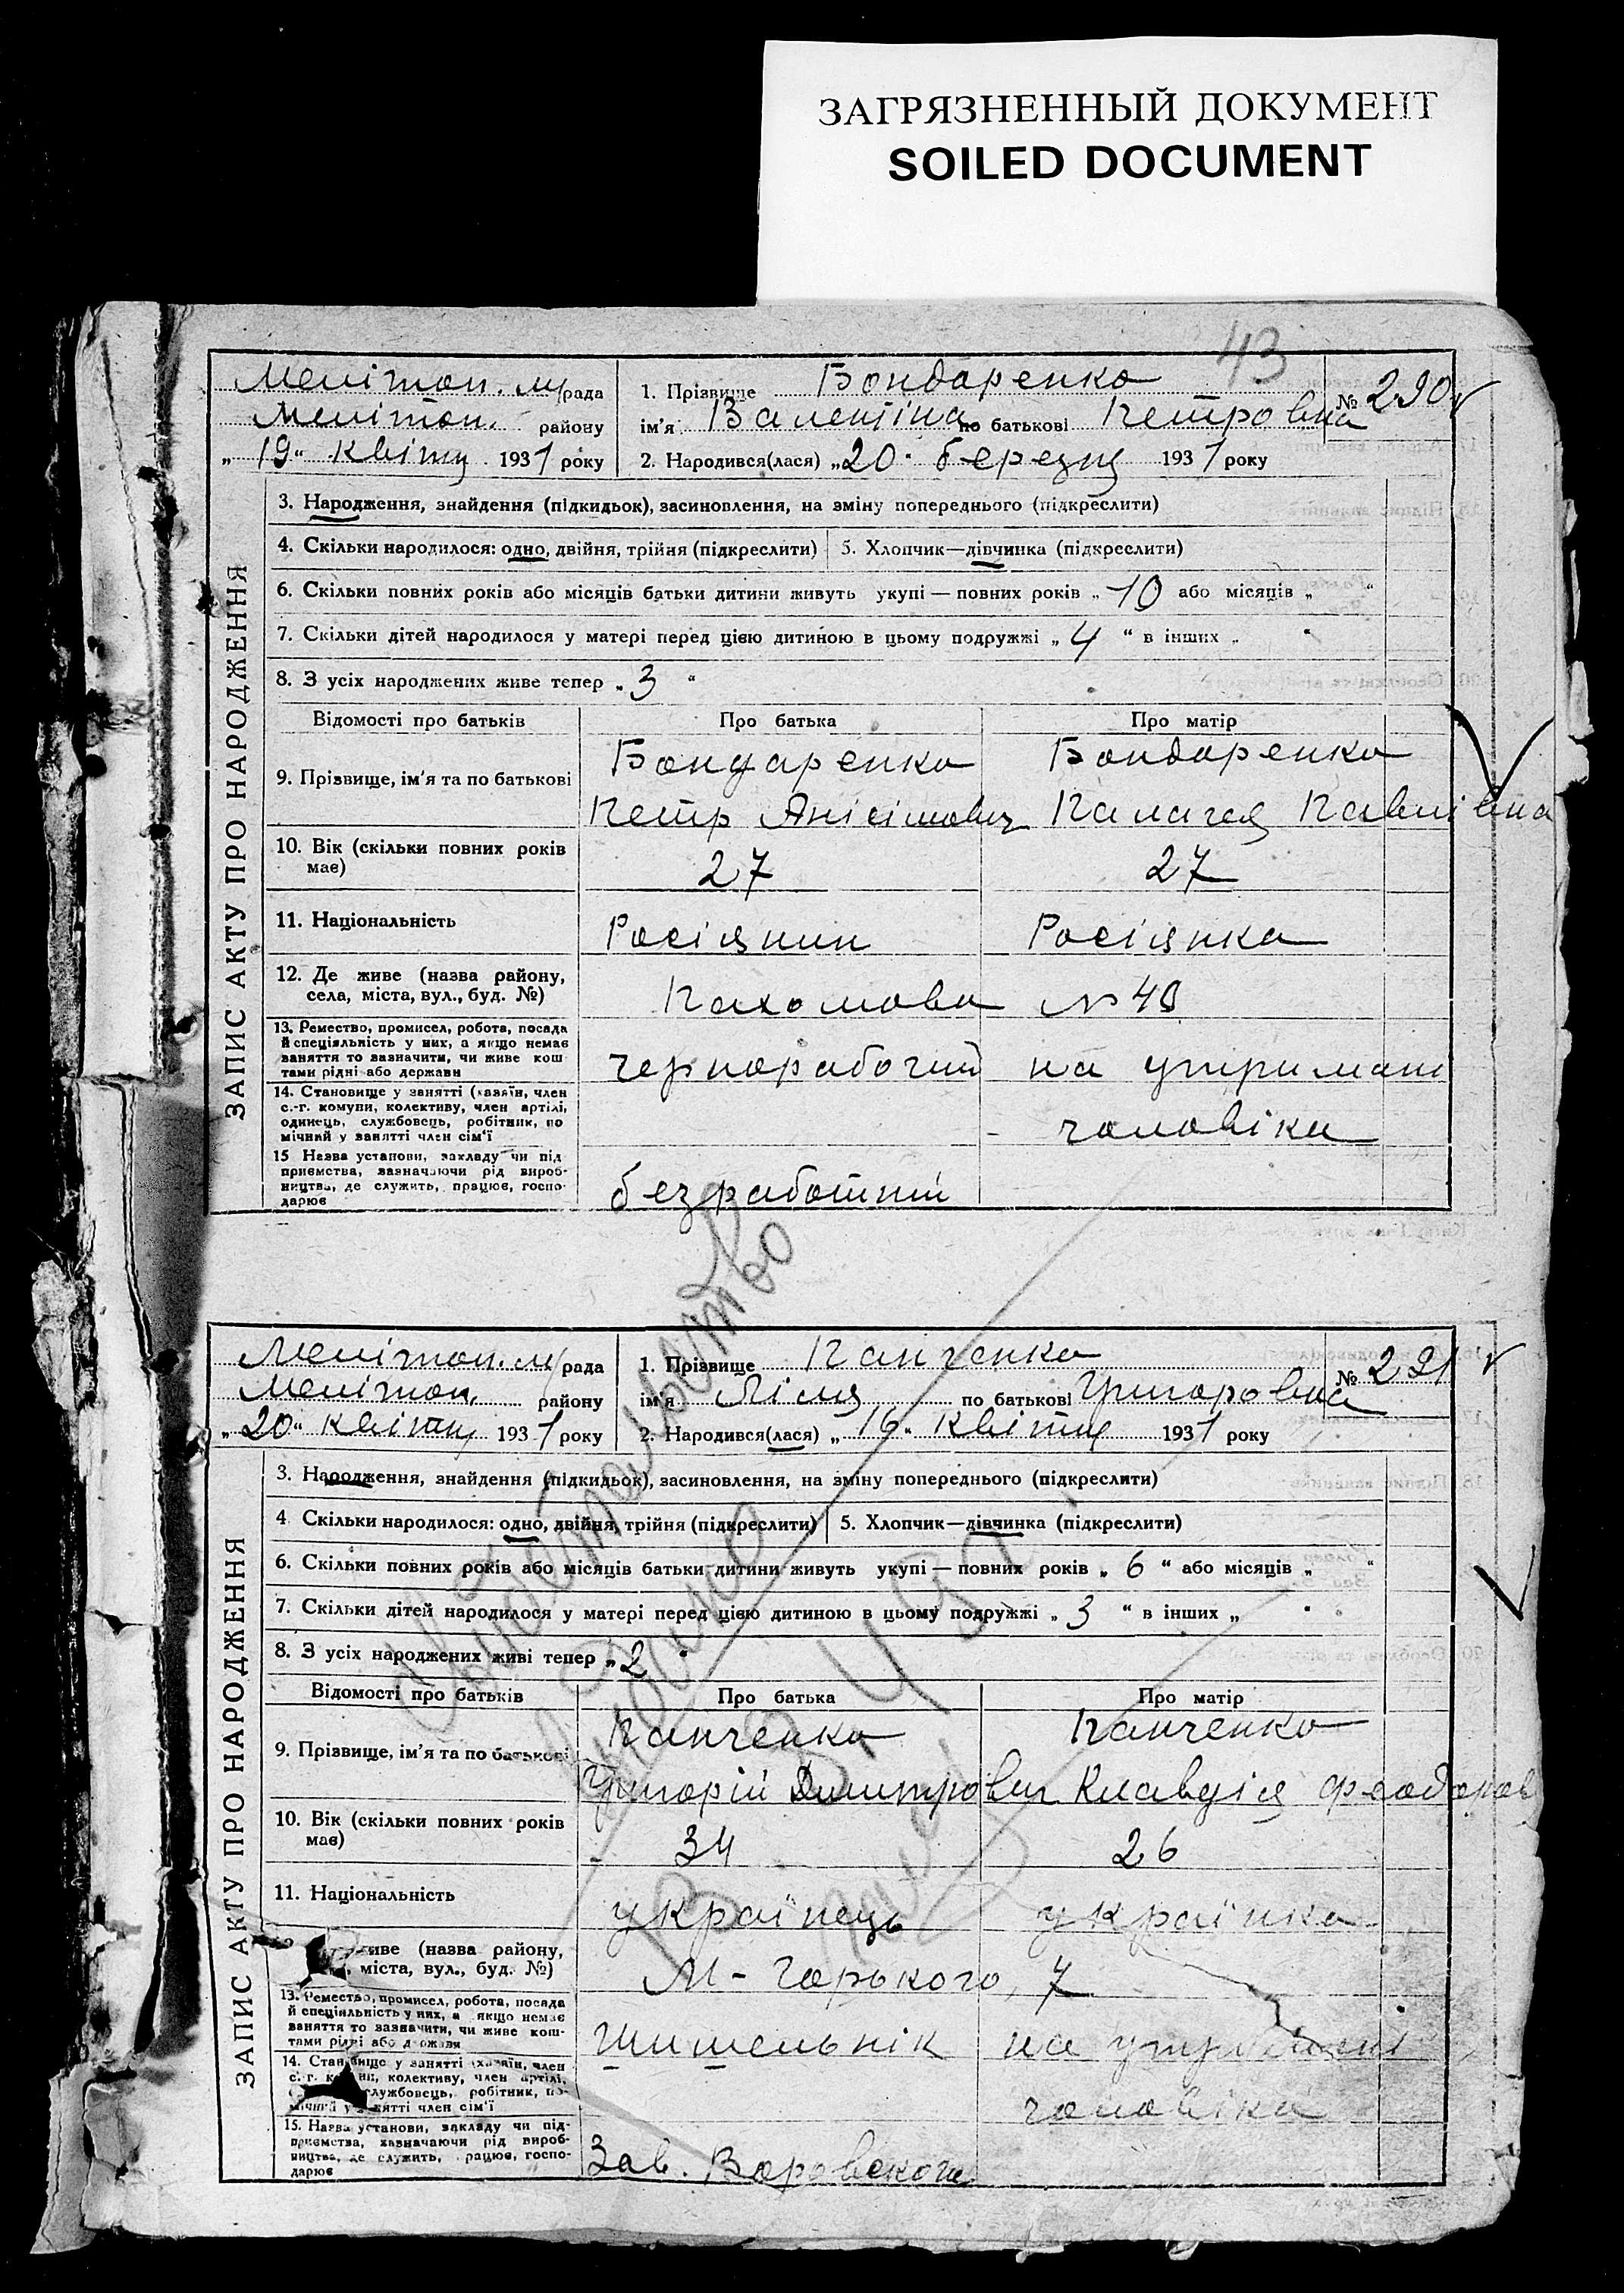 ЗАГРЯЗНЕННЫЙ ДОКУМЕНТ
SOILED DOCUMENT
43
Меліточ. м/рада
Меліточ. району
„19“ Квітня 1931 року
1. Прізвище Бондаренко
ім'я Валентіна по батькові Петровна
№ 290
2. Народився(лася) „20“ березня 1931 року
ЗАПИС АКТУ ПРО НАРОДЖЕННЯ
3. Народження, знайдення (підкидьок), засиновлення, на зміну попереднього (підкреслити)
4. Скільки народилося: одно, двійня, трійня (підкреслити) 5. Хлопчик—дівчинка (підкреслити)
6. Скільки повних років або місяців батьки дитини живуть укупі — повних років „10 або місяців „ “
7. Скільки дітей народилося у матері перед цією дитиною в цьому подружжі „4“ в інших „ “
8. З усіх народжених живе тепер „3“
Відомості про батьків Про батька Про матір
9. Прізвище, ім'я та по батькові
Бондаренко Бондаренко
Петр Анісімович Палагея Павлівна
10. Вік (скільки повних років має) 27 27
11. Національність Росіянин Росіянка
12. Де живе (назва району, села, міста, вул., буд. №) Пахомова № 49
13. Ремество, промисел, робота, посада й спеціяльність у них, а якщо немає заняття то зазначити, чи живе коштами рідні або держави
чернорабочий на утриман
14. Становище у занятті (хазяїн, член с.-г. комуни, колективу, член артілі, одинець, службовець, робітник, помічний у занятті член сім'ї
чоловіка
15 Назва установи, закладу чи підприємства, зазначаючи рід виробництва, де служить, працює, господарює
безработний
Меліточ. м/рада
Меліточ. району
„20“ квітня 1931 року
1. Прізвище Панченко
ім'я Ліля по батькові Григоровна
№ 291
2. Народився(лася) „16“ Квітня 1931 року
ЗАПИС АКТУ ПРО НАРОДЖЕННЯ
3. Народження, знайдення (підкидьок), засиновлення, на зміну попереднього (підкреслити)
4 Скільки народилося: одно, двійня, трійня (підкреслити) 5. Хлопчик—дівчинка (підкреслити)
6. Скільки повних років або місяців батьки дитини живуть укупі — повних років „6“ або місяців „ “
7. Скільки дітей народилося у матері перед цією дитиною в цьому подружжі „3“ в інших „ “
8. З усіх народжених живі тепер „2“
Відомості про батьків Про батька Про матір
9. Прізвище, ім'я та по батькові
Панченко Панченко
Григорій Дмитрович Клавдія Феодоров
10. Вік (скільки повних років має) 34 26
11. Національність українець українка
живе (назва району, міста, вул., буд. №) М-Горького, 7
13. Ремество, промисел, робота, посада й спеціяльність у них, а якщо немає заняття то зазначити, чи живе коштами рідні або держави
на утриманні
14. Становище у занятті (хазяїн, член с.-г. комуни, колективу, член артілі, службовець, робітник, помічний у занятті член сім'ї
чоловіка
15. Назва установи, закладу чи підприємства, зазначаючи рід виробництва, де служить, працює, господарює
Зав. Воровского